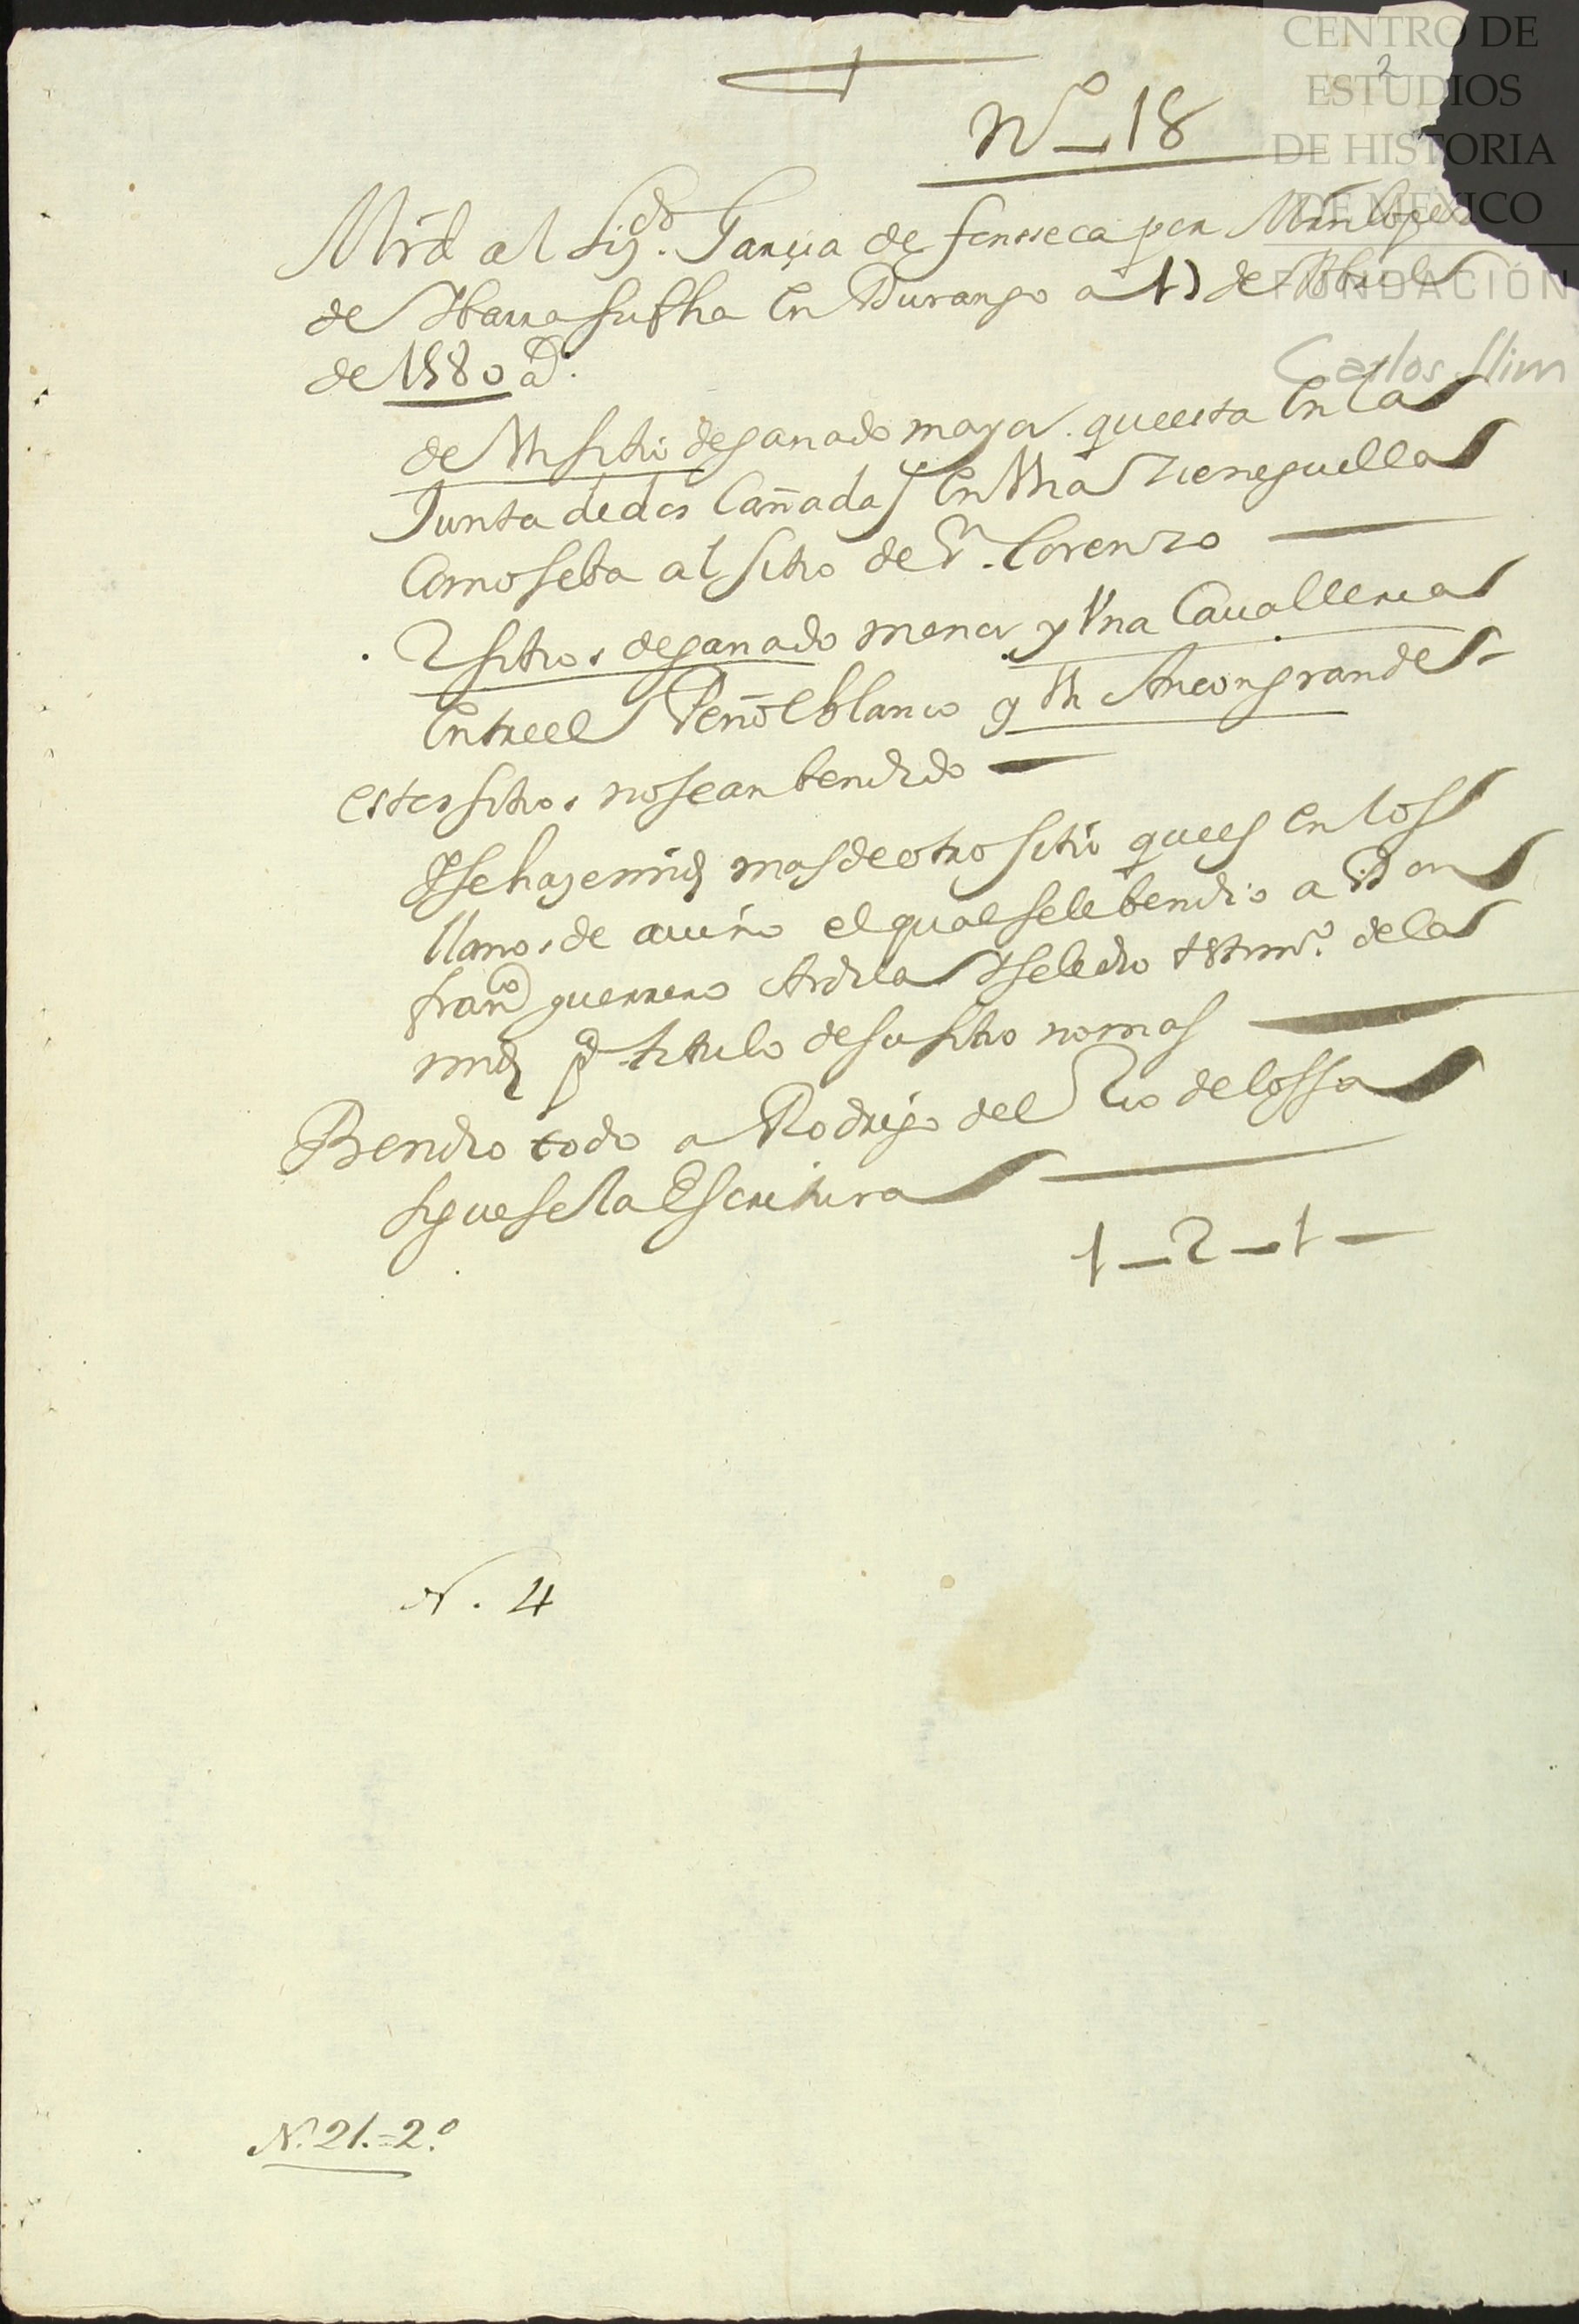 CENTRO DE
ESTUDIOS
DE HISTORIA
DE MEXICO
FUNDACIÓN
Carlos Slim
2
nº 18
Mrd al Liz.do Garçia de fonsseca por Mrn Lopez
de Ybarra su fha en Durango a 1) de Abril
de 1580 ad.
de Vn sitio de ganado mayor. que esta en la
Junta de dos Cañadas en Vna Zieneguilla
Como se ba al sitio de Sn. Lorenzo
2 sitios de ganado menor y Vna Cavalleria
Entre el Peñol blanco y Vn Ancon grande
estos sitios no se an bendido
Y se haze mrd mas de otro sitio que es en los
llanos de avino el qual se le bendio a Don
franco guerrero Ardila Y se le dio testimo. de la
mrd pa titulo de su sitio no mas
Bendio todo a Rodrigo del Rio de lossa
siguese la Escritura
1 — 2 — 1 —
N. 4
N. 21. = 2.º